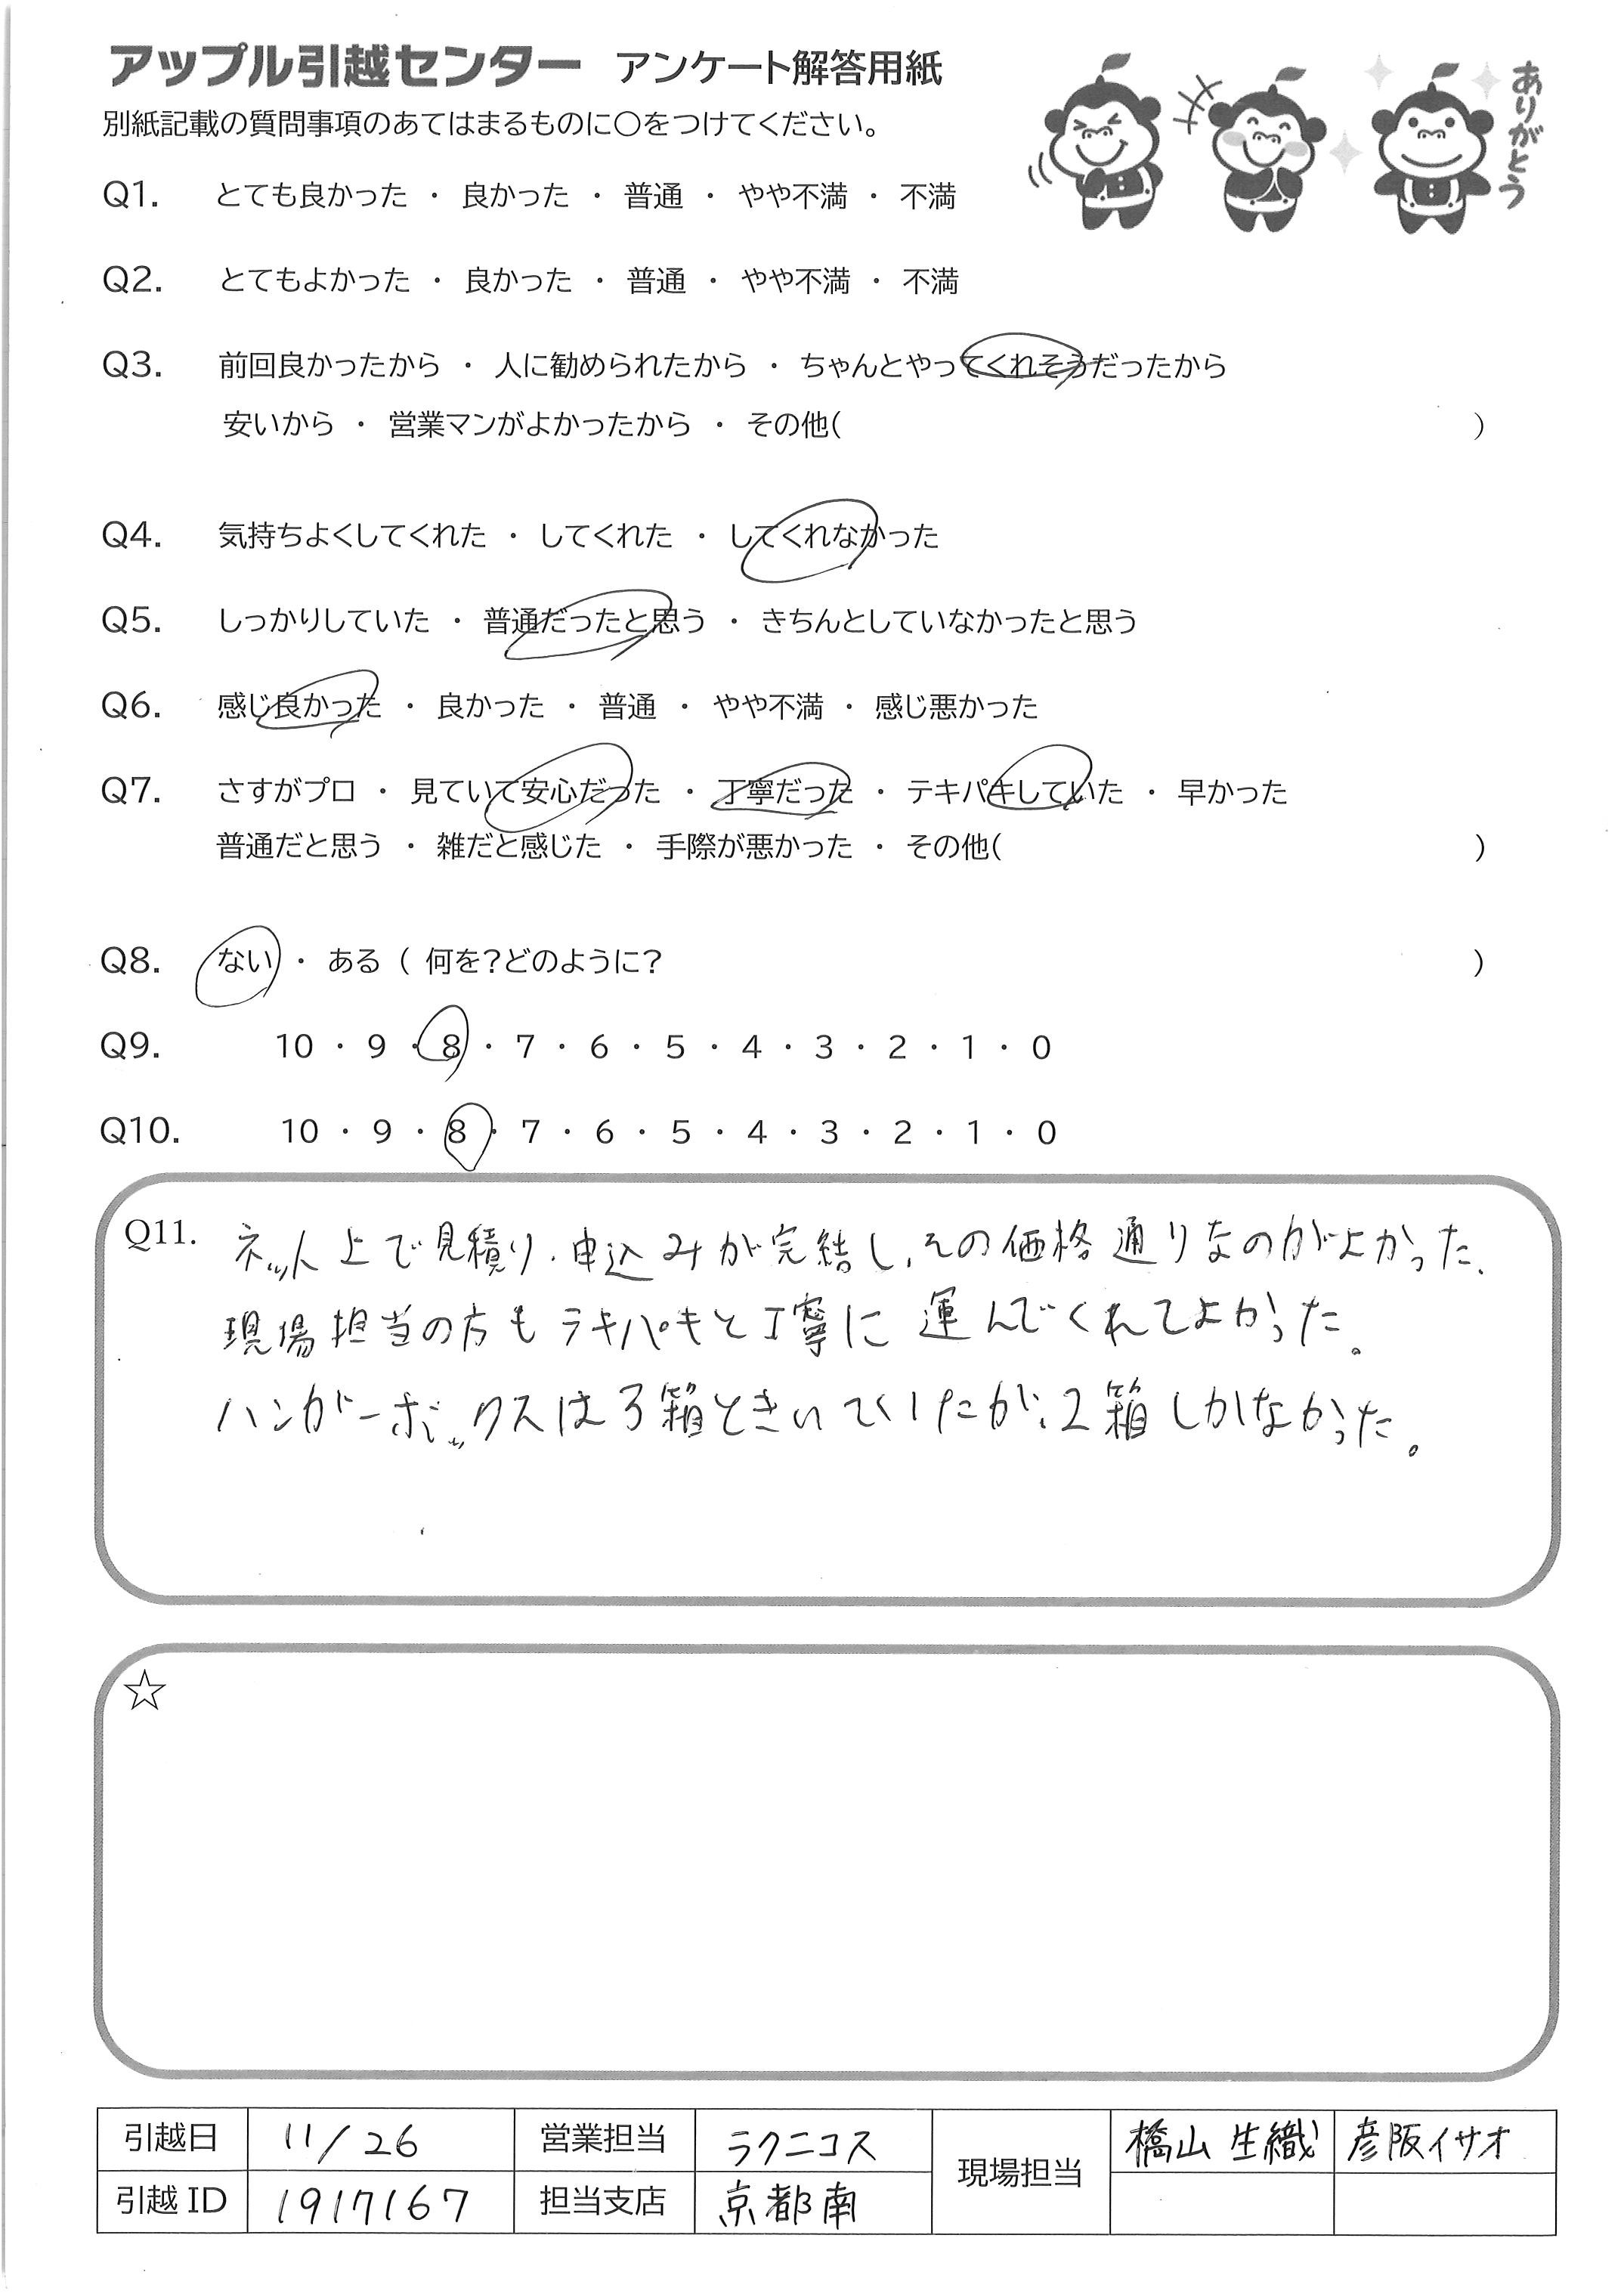 アップル引越センター アンケート解答用紙
ありがとう
別紙記載の質問事項のあてはまるものに○をつけてください。
Q1. とても良かった ・ 良かった ・ 普通 ・ やや不満 ・ 不満
Q2. とてもよかった ・ 良かった ・ 普通 ・ やや不満 ・ 不満
Q3. 前回良かったから ・ 人に勧められたから ・ ちゃんとやってくれそうだったから
安いから ・ 営業マンがよかったから ・ その他( )
Q4. 気持ちよくしてくれた ・ してくれた ・ してくれなかった
Q5. しっかりしていた ・ 普通だったと思う ・ きちんとしていなかったと思う
Q6. 感じ良かった ・ 良かった ・ 普通 ・ やや不満 ・ 感じ悪かった
Q7. さすがプロ ・ 見ていて安心だった ・ 丁寧だった ・ テキパキしていた ・ 早かった
普通だと思う ・ 雑だと感じた ・ 手際が悪かった ・ その他( )
Q8. ない ・ ある ( 何を?どのように? )
Q9. 10 ・ 9 ・ 8 ・ 7 ・ 6 ・ 5 ・ 4 ・ 3 ・ 2 ・ 1 ・ 0
Q10. 10 ・ 9 ・ 8 ・ 7 ・ 6 ・ 5 ・ 4 ・ 3 ・ 2 ・ 1 ・ 0
Q11. ネット上で見積り、申込みが完結し、その価格通りなのがよかった、
現場担当の方もテキパキと丁寧に運んでくれてよかった。
ハンガーボックスは3箱ときいていたが、2箱しかなかった。
☆
引越日 11/26 営業担当 ラクニコス 現場担当 橋山 生織 彦阪イサオ
引越 ID 1917167 担当支店 京都南